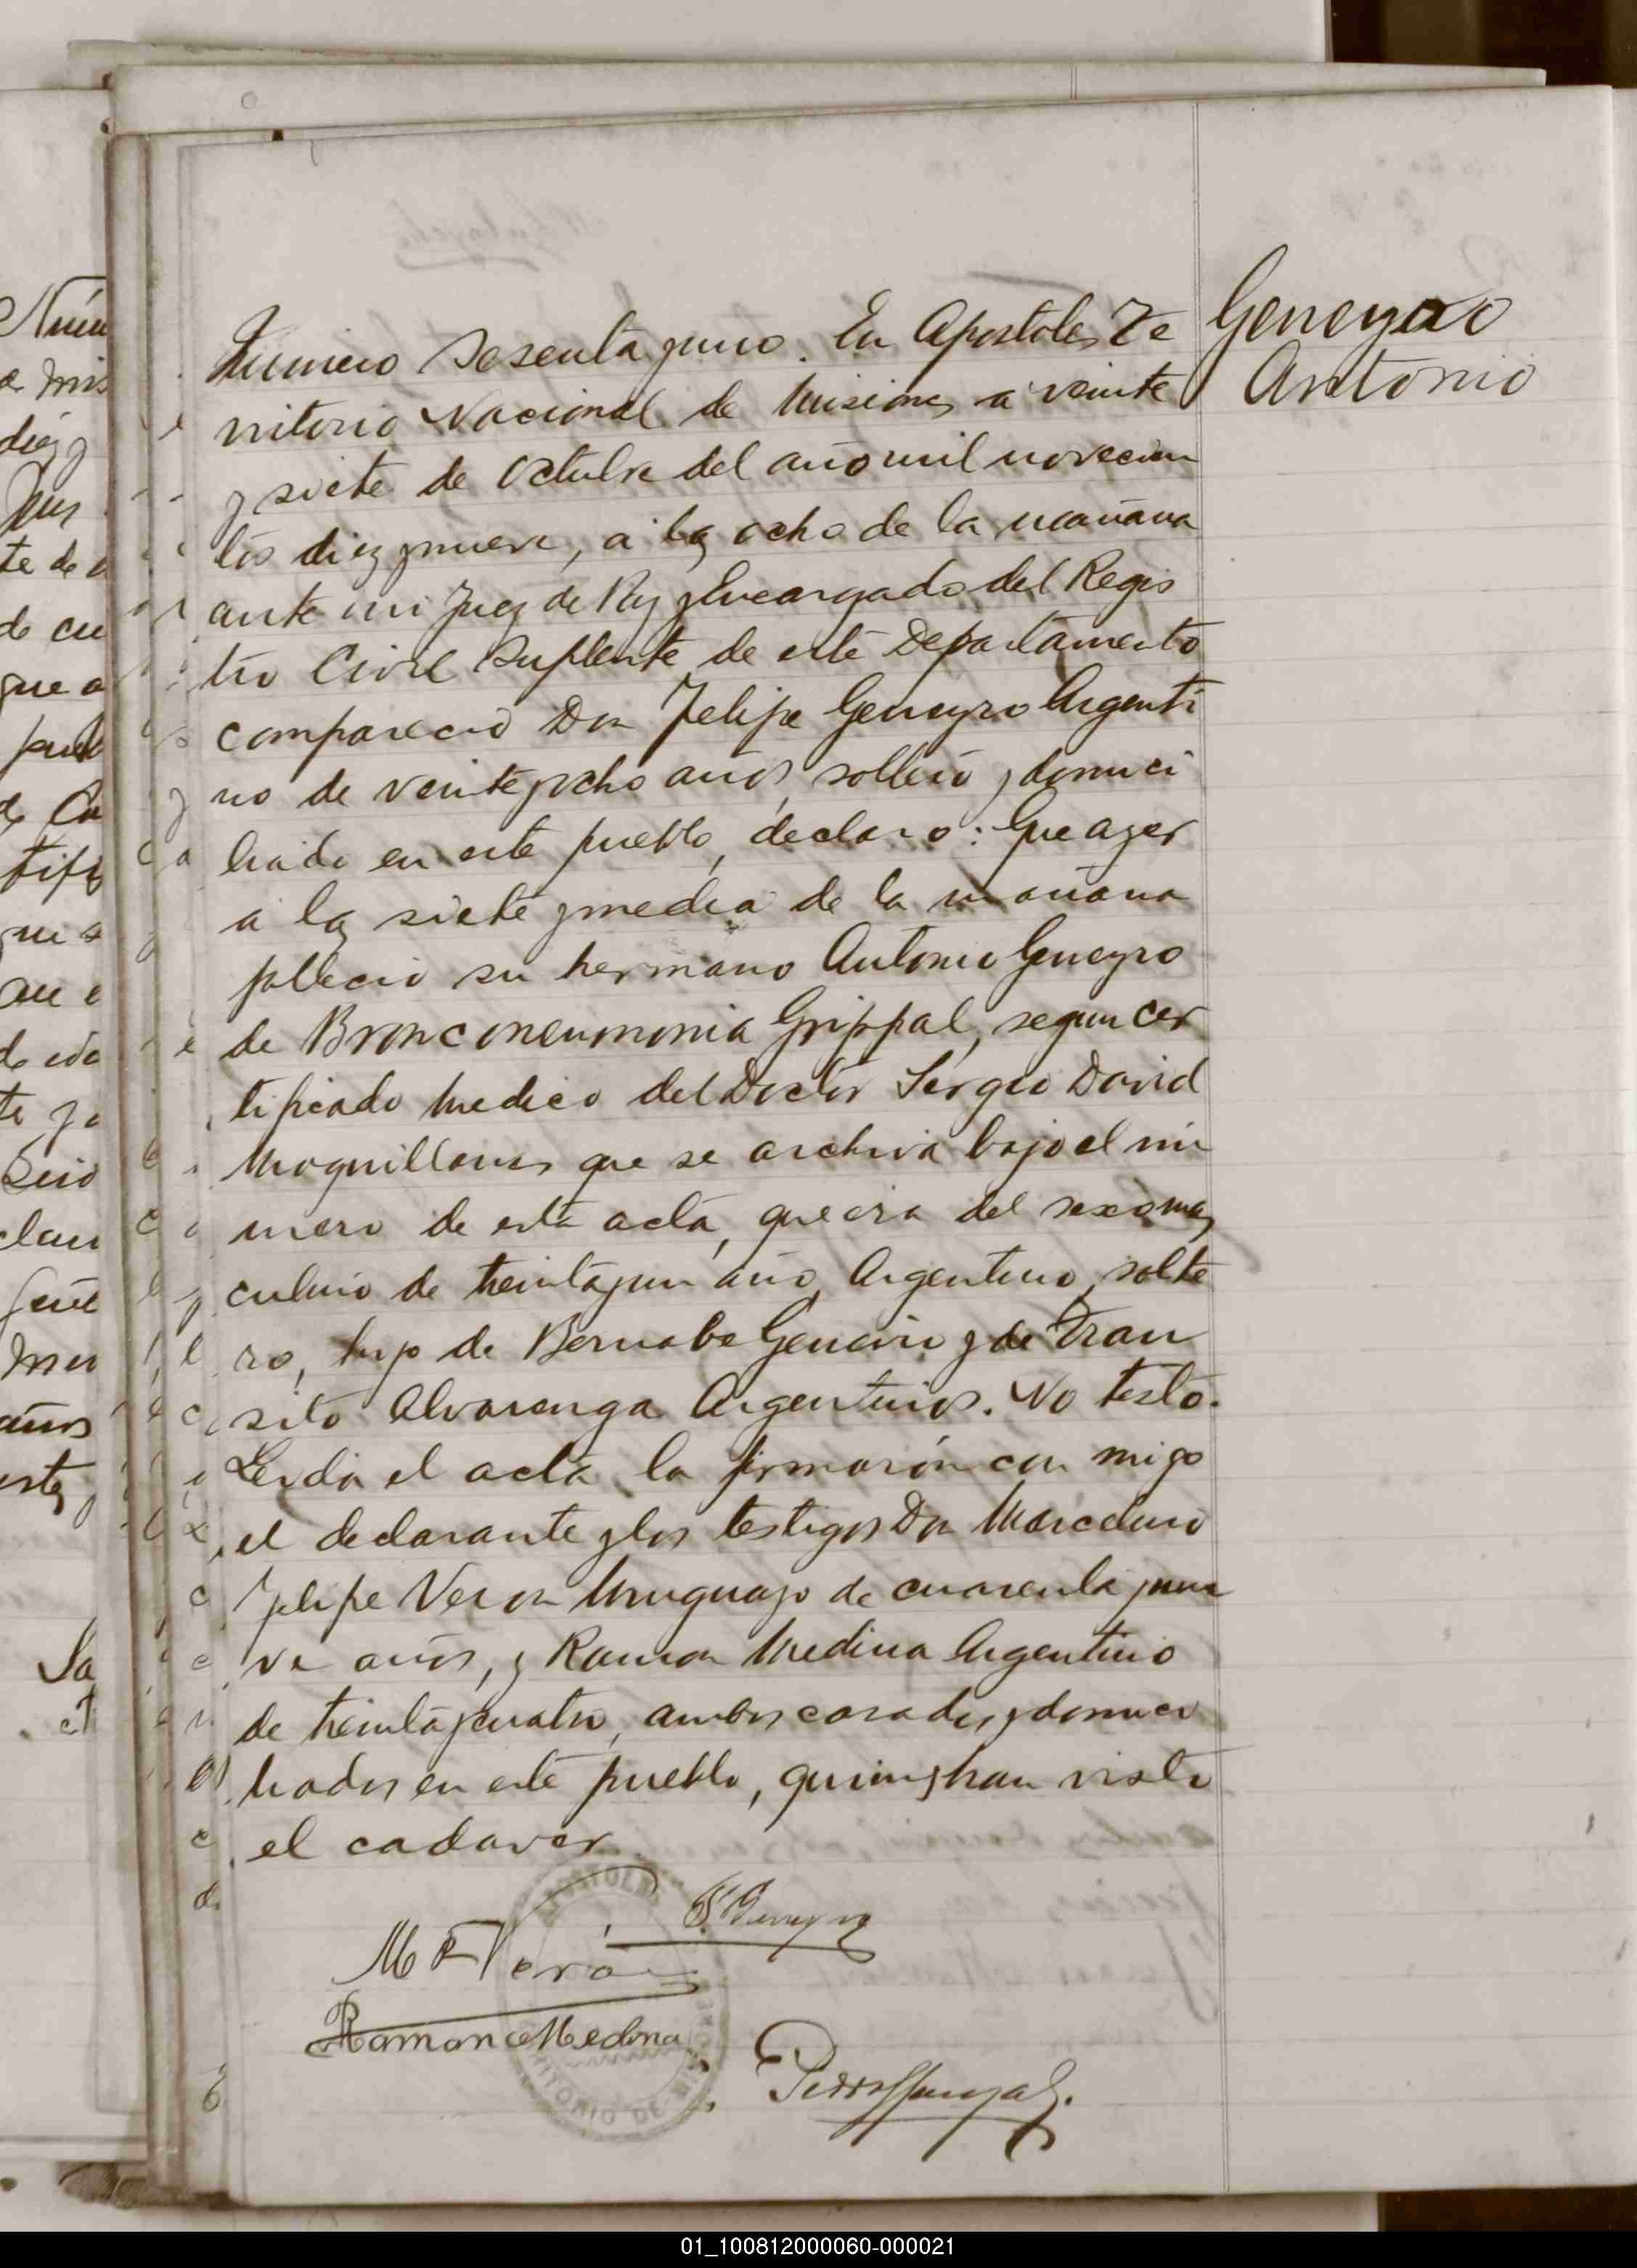 Geneyro
Antonio
Número sesenta y uno. En Apostoles Te
rritorio Nacional de Misiones a veinte
y siete de Octubre del año mil novecien
tos diez y nueve, a las ocho de la mañana
ante mi Juez de Paz y Encargado del Regis
tro Civil Suplente de este Departamento
compareció Don Felipe Geneyro Argenti
no de veinte y ocho años, soltero y domici
liado en este pueblo, declaro: Que ayer
a las siete y media de la mañana
fallecio su hermano Antonio Geneyro
de Bronconeumonia Grippal, segun cer
tificado medico del Doctor Sergio David
Moquillanes que se archiva bajo el nú
mero de esta acta, que era del sexo mas
culino de treinta y un año, Argentino, solte
ro, hijo de Bernabe Geneiro y de Tran
sito Alvarenga Argentinos. No testó.
Leida el acta la firmarón con migo
el declarante y los testigos Don Marcelino
Felipe Veron Uruguayo de cuarenta y nue
ve años, y Ramon Medina Argentino
de treinta y cuatro, ambos casados y domici
liados en este pueblo, quienes han visto
el cadaver
F. Geneyro
M F Verón
Ramon Medina
01_100812000060-000021